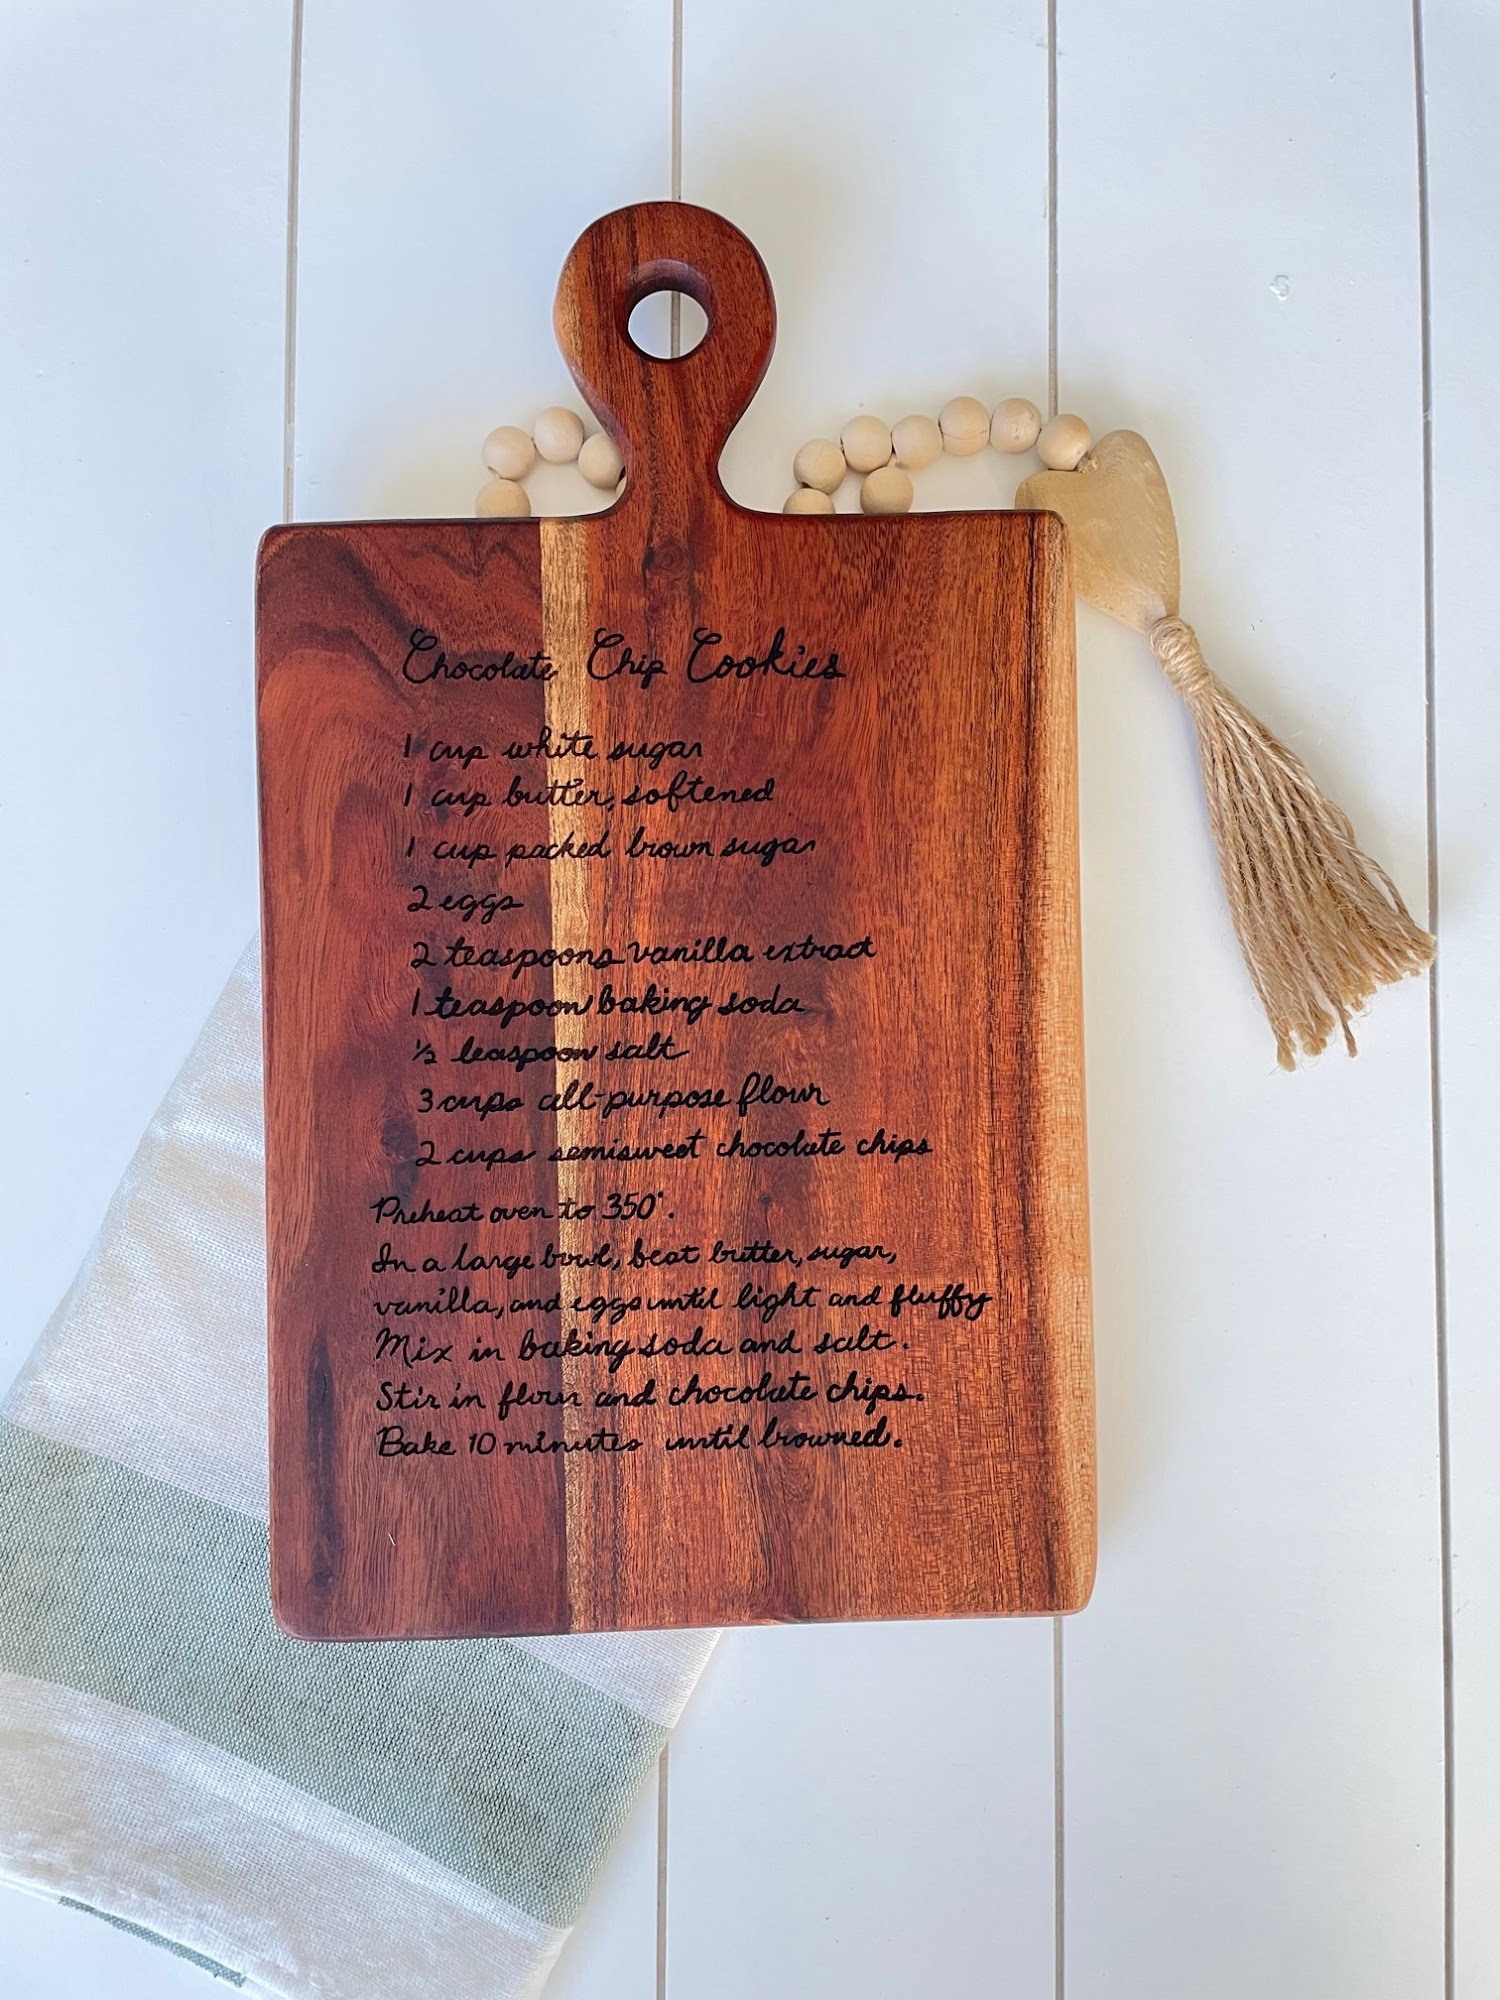 Chocolate Chip Cookies
1 cup white sugar
1 cup butter, softened
1 cup packed brown sugar
2 eggs
2 teaspoons vanilla extract
1 teaspoon baking soda
½ teaspoon salt
3 cups all-purpose flour
2 cups semisweet chocolate chips
Preheat oven to 350°.
In a large bowl, beat butter, sugar,
vanilla, and eggs until light and fluffy
Mix in baking soda and salt.
Stir in flour and chocolate chips.
Bake 10 minutes until browned.